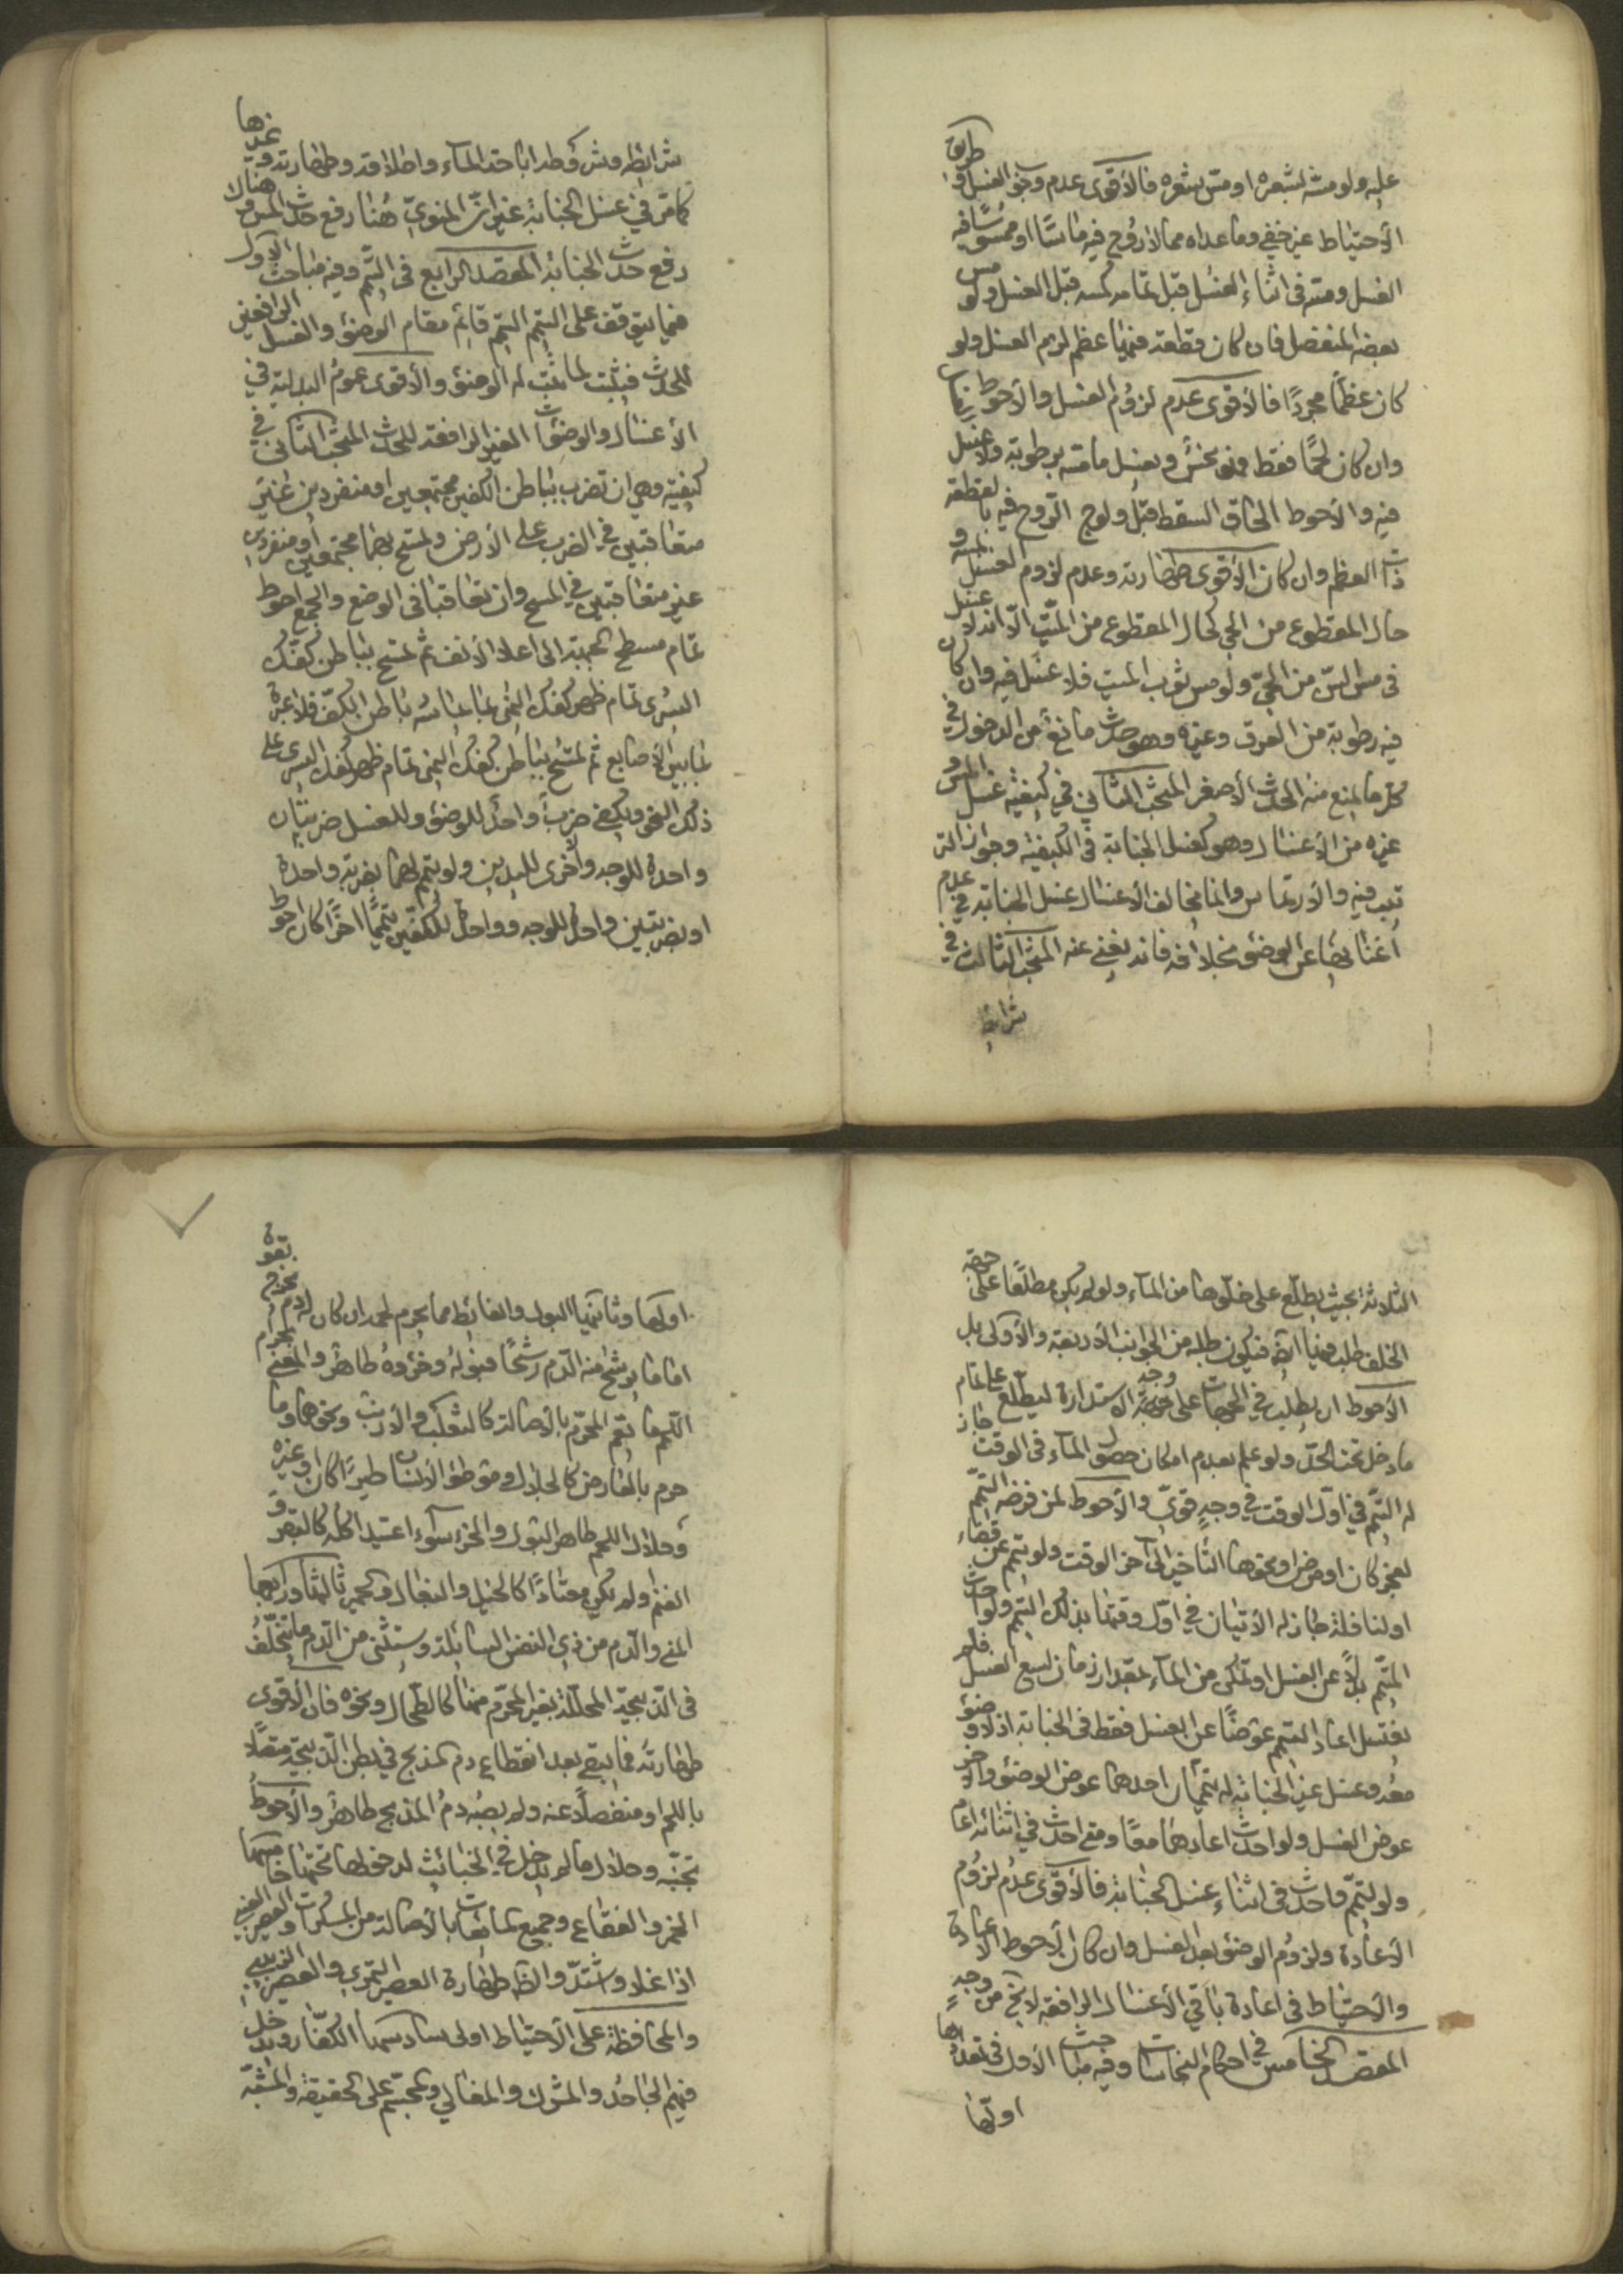 عليه ولو مسّه بشعره او مسّ بشعره فالأقوى عدم وجوب الغسل وطريق
الأحتياط غير خفي وما عداه ممّا لا روح فيه ماسّا او ممسوسًا فيه
الغسل ومسّه في اثناء الغسل قبل تمامه كمسه قبل الغسل ولو مس
بعضه المنفصل فان كان قطعة فيها عظم لزم الغسل ولو
كان عظمًا مجردًا فالأقوى عدم لزوم الغسل والأحوط
وان كان لحمًا فقط فهو نجس ويغسل ما مسّه برطوبة ولا غسل
فيه والأحوط الحاق السقط قبل ولوج الرّوح فيه بالقطعة
ذات العظم وان كان الأقوى طهارته وعدم لزوم الغسل بمسه و
حال المقطوع من الحي كحال المقطوع من الميّت الّا انه لا غسل
في مس السنّ من الحيّ ولو مس ثوب الميت فلا غسل فيه وان كان
فيه رطوبة من العرق وغيره وهو حدث مانع من الدخول في
كلّ ما يمنع منه الحدث الأصغر المبحث الثاني في كيفيّة غسل المس و
غيره من الأغسال وهو كغسل الجنابة في الكيفية وجواز التر
تيب فيه والأرتماس وانما يخالف الأغسال غسل الجنابة في عدم
أغنائها عن الوضوء بخلافه فانه يغني عنه المبحث الثالث في
شرائط
شرائطه وشروطه اباحة المآء واطلاقه وطهارته وغيرها
كما مرّ في غسل الجنابة غير انّ المنويّ هُنا رفع حدث المس وهناك
رفع حدث الجنابة المقصد الرابع في التيمّم وفيه مباحث الاول
فيما يتوقف على التيمّم التيمّم قائم مقام الوضوء والغسل الرافعين
للحدث فيثبت لما يثبت له الوضوء والأقوى عموم البدليّة في
الأغسال والوضوءات الغير الرافعة للحدث المبحث الثاني في
كيفيّته وهي ان تضرب بباطن الكفين مجتمعين او منفردين غير
متعاقبين في الضرب على الأرض وتمسح بهما مجتمعين أو منفردين
غير متعاقبتين في المسح وان تعاقبتا في الوضع والجمع احوط
تمام مسطح الجبهة الى اعلا الأنف ثم تمسح بباطن كفّك
اليسرى تمام ظهر كفك اليمنى مما يماسّه باطن الكفّ فلا عبرة
بما بين الأصابع ثم تمسح بباطن كفك اليمنى تمام ظهر كفك اليسرى على
ذلك النحو ويكفي ضربةٌ واحدةٌ للوضوء وللغسل ضربتان
واحدة للوجه وأخرى لليدين ولو تيمّم لهما بضربة واحدة
او بضربتين واحدة للوجه وواحدة للكفّين تيمّمًا آخرًا كان احوط
الثلاثة بحيث يطّلع على خلّوها من المآء ولو لم يكن مطلعًا على جهة
الخلف طلب فيها ايضًا فيكون طلبه من الجوانب الأربعة والأولى بل
الأحوط ان يطلب في الجهات على وجه الاستدارة ليطّلع على تمام
ما دخل تحت الحدّ ولو علم بعدم امكان حصول المآء في الوقت جاز
له التيمّم في اوّل الوقت في وجهٍ قويّ والأحوط لمن فرضه التيمّم
لعجز كان او مرض او نحوها التأخير الى آخر الوقت ولو تيمّم عن قضاء
او لنافلة جاز له الأتيان في اوّل وقتها بذلك التيمم ولو احدث
المتيمّم بدلًا عن الغسل او تمكن من المآء بمقدار زمان يسع الغسل فلم
يغتسل اعاد التيمّم عوضًا عن الغسل فقط في الجنابة اذ لا وضوء
معه وغسل غير الجنابة له تيمّمان احدهما عوض الوضوء والآخر
عوض الغسل ولو احدث اعادهما معًا ومتى احدث في اثنائه اعاد
ولو تيمّم فاحدث في اثناء غسل الجنابة فالأقوى عدم لزوم
الأعادة ولزوم الوضوء بعد الغسل وان كان الأحوط الاعادة
والأحتياط في اعادة باقي الأغسال الرافعة لا يخ من وجهٍ
المقصد الخامس في احكام النجاسات وفيه مباحث الأول في تعدادها
اولّها
اولها وثانيها البول والغائط مما يحرم لحمه ان كان له دم يخرج بقوة
اما ما يرشح منه الدّم رشحًا فبوله وخرؤه طاهر والمعنى بمحرم
اللّحم ما يعم المحرّم بالأصالة كالثعلب والأرنب ونحوها وما
حرم بالعارض كالجلال وموطوء الأنسان طيرًا كان او غيره
وحلال اللحم طاهر البول والخرء سوآء اعتيد اكله كالبقر و
الغنم او لم يكن معتادًا كالخيل والبغال والحمير ثالثها ورابعها
المنى والدّم من ذي النفس السائلة ويستثنى من الدّم ما يتخلّف
في الذبيحة المحللة بغير المحرّم منها كالطحال ونحوه فان الأقوى
طهارته فما يبقى بعد انقطاع دم المذبح في بطن الذبيحة متصلًا
باللحم او منفصلًا عنه ولم يصبه دمُ المذبح طاهرٌ والأحوط
تجنبّه وحلال ما لم يدخل في الخبائث لدخولها تحتها خامسها
الخمر والفقاع وجميع المائعات بالأصالة من المسكرات والعصير العنبي
اذا غلا واشتدّ والظ طهارة العصير التمري والعصير الزبيبي
والمحافظة على الأحتياط اولى سادسها الكفّار ويدخل
فيهم الجاحد والمشرك والمغالي والمجسّم على الحقيقة والمشبّه